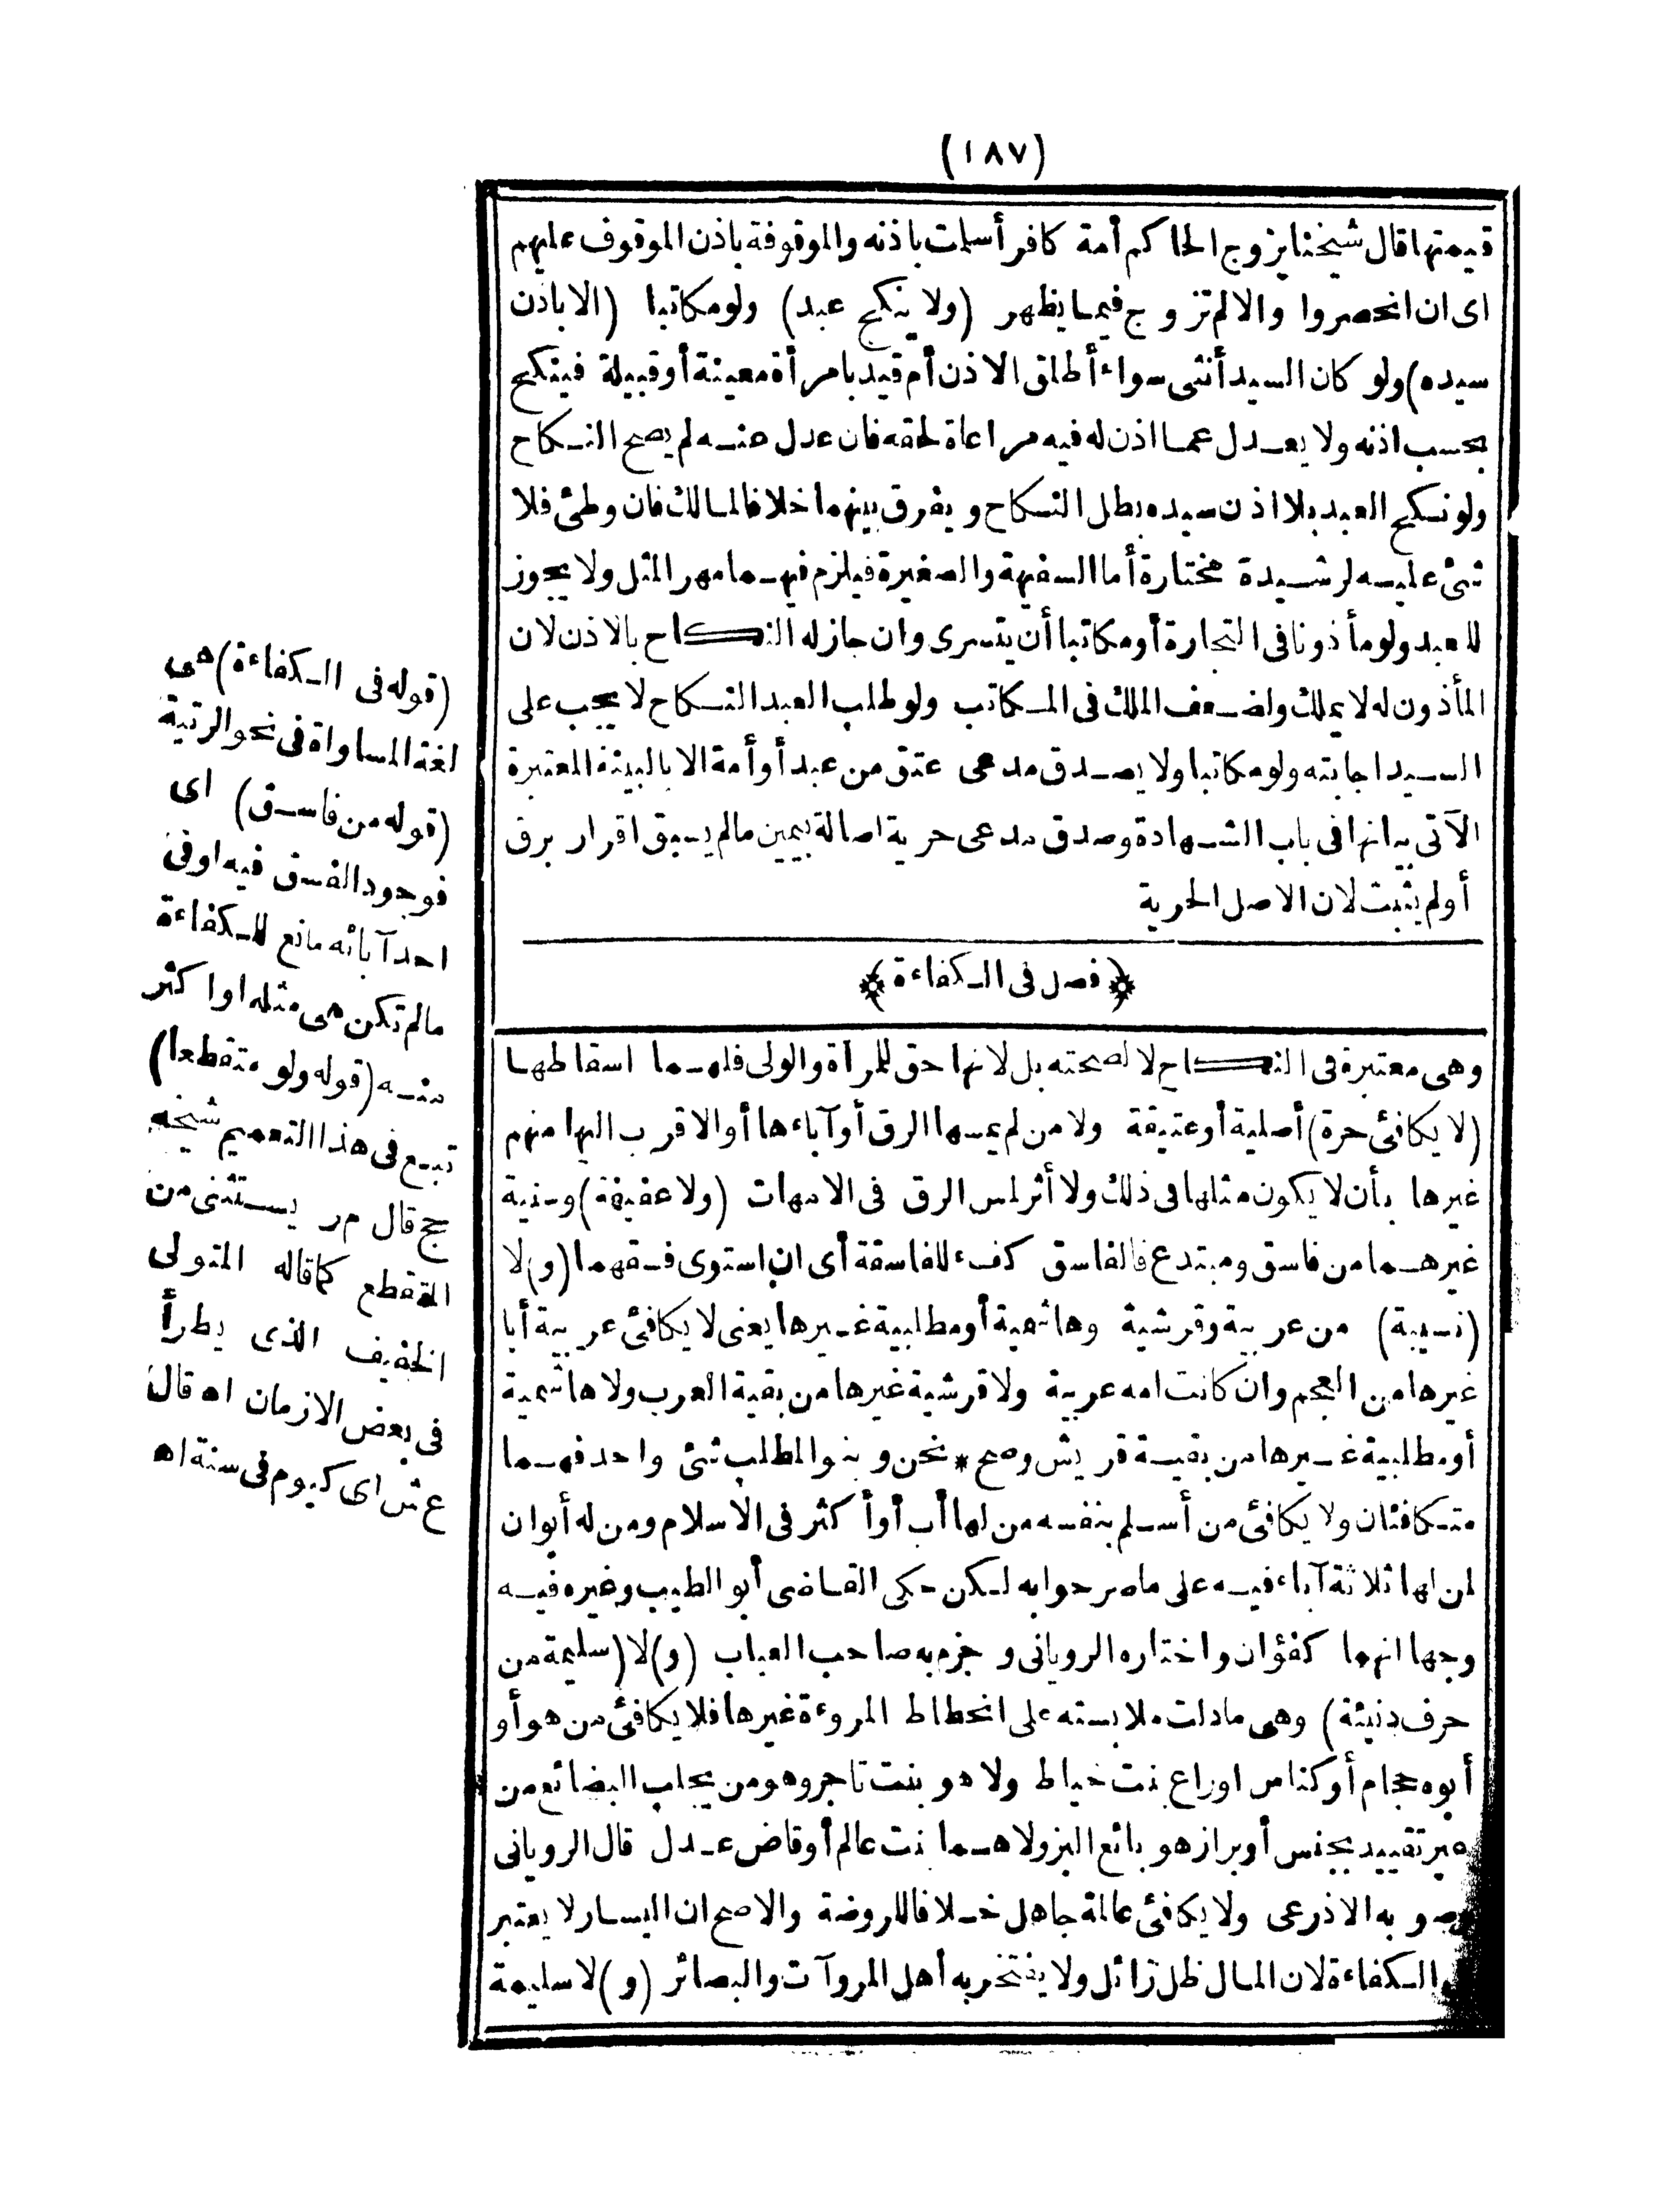 (١٨٧)
قيمتها قال شيخنا يزوج الحاكم أمة كافر أسلمت باذنه والموقوفة باذن الموقوف عليهم
اى ان انحصروا والالم تزوج فيما يظهر (ولا ينكح عبد) ولو مكاتبا (الا باذن
سيده) ولو كان السيد أنثى سواء أطلق الاذن أم قيد بامرأة معينة أو قبيلة فينكح
بحسب اذنه ولا يعدل عما اذن له فيه مراعاة لحقه فان عدل عنه لم يصح النكاح
ولو نكح العبد بلا اذن سيده بطل النكاح ويفرق بينهما خلافا لمالك فان وطئ فلا
شئ عليه لرشيدة مختارة أما السفيهة والصغيرة فيلزم فيهما مهر المثل ولا يجوز
للعبد ولو مأذونا فى التجارة أو مكاتبا أن يتسرى وان جاز له النكاح بالاذن لان
المأذون له لا يملك ولضعف الملك فى المكاتب ولو طلب العبد النكاح لا يجب على
السيد اجابته ولو مكاتبا ولا يصدق مدعى عتق من عبد أو أمة الا بالبينة المعتبرة
الآتى بيانها فى باب الشهادة وصدق مدعى حرية اصالة بيمين مالم يسبق اقرار برق
أو لم يثبت لان الاصل الحرية
﴿فصل فى الكفاءة﴾
وهى معتبرة فى النكاح لا لصحته بل لانها حق للمرأة والولى فلهما اسقاطها
(لا يكافئ حرة) أصلية أو عتيقة ولا من لم يمسها الرق أو آباءها أو الاقرب اليها منهم
غيرها بأن لا يكون مثلها فى ذلك ولا أثر لمس الرق فى الامهات (ولا عفيفة) وسنية
غيرهما من فاسق ومبتدع فالفاسق كفء للفاسقة أى ان استوى فسقهما (و) لا
(نسيبة) من عربية وقرشية وهاشمية أو مطلبية غيرها يعنى لا يكافئ عربية أبا
غيرها من العجم وان كانت امه عربية ولا قرشية غيرها من بقية العرب ولا هاشمية
أو مطلبية غيرها من بقية قريش وصح * نحن وبنو المطلب شئ واحد فهما
متكافئان ولا يكافئ من أسلم بنفسه من لها أب أو أكثر فى الاسلام ومن له أبوان
لمن لها ثلاثة آباء فيه على ما صرحوا به لكن حكى القاضى أبو الطيب وغيره فيه
وجها انهما كفؤان واختاره الرويانى وجزم به صاحب العباب (و) لا (سليمة من
حرف دنيئة) وهى ما دلت ملابسته على انحطاط المروءة غيرها فلا يكافئ من هو أو
أبوه حجام أو كناس اوراع بنت خياط ولا هو بنت تاجر وهو من يجلب البضائع من
غير تقييد بجنس أو بزاز هو بائع البز ولا هما بنت عالم أو قاض عدل قال الرويانى
وصوبه الاذرعى ولا يكافئ عالمة جاهل خلافا للروضة والاصح ان اليسار لا يعتبر
والكفاءة لان المال ظل زائل ولا يفتخر به أهل المروآت والبصائر (و) لا سليمة
(قوله فى الكفاءة) هى
لغة المساواة فى نحو الرتبة
(قوله من فاسق) اى
فوجود الفسق فيه او فى
احد آبائه مانع للكفاءة
مالم تكن هى مثله او اكثر
منه (قوله ولو متقطعا)
تبع فى هذا التعميم شيخه
حج قال م ر يستثنى من
المتقطع كما قاله المتولى
الخفيف الذى يطرأ
فى بعض الازمان اه قال
ع ش اى كيوم فى سنة اه